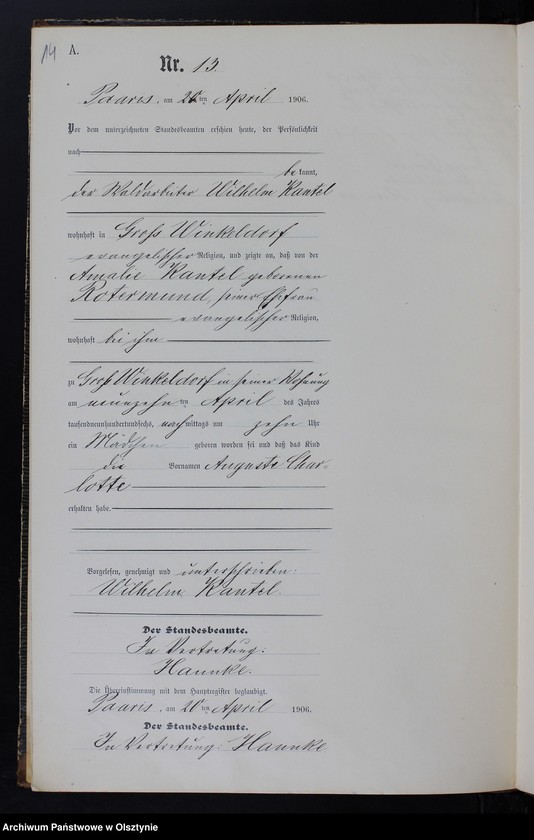 14
A.
Nr. 13.
Paaris, am 20ten April 1906.
Vor dem unterzeichneten Standesbeamten erschien heute, der Persönlichkeit
nach
bekannt,
der Waldarbeiter Wilhelm Kantel
wohnhaft in Groß Winkeldorf
evangelischer Religion, und zeigte an, daß von der
Amalie Kantel geborenen
Rotermund, seiner Ehefrau
evangelischer Religion,
wohnhaft bei ihm
zu Groß Winkeldorf in seiner Wohnung
am neunzehnten April des Jahres
tausendneunhundertundsechs, nachmittags um zehn Uhr
ein Mädchen geboren worden sei und daß das Kind
die Vornamen Auguste Char-
lotte
erhalten habe.
Vorgelesen, genehmigt und unterschrieben:
Wilhelm Kantel.
Der Standesbeamte.
In Vertretung:
Hannke.
Die Übereinstimmung mit dem Hauptregister beglaubigt.
Paaris, am 20ten April 1906.
Der Standesbeamte.
In Vertretung: Hannke
Archiwum Państwowe w Olsztynie